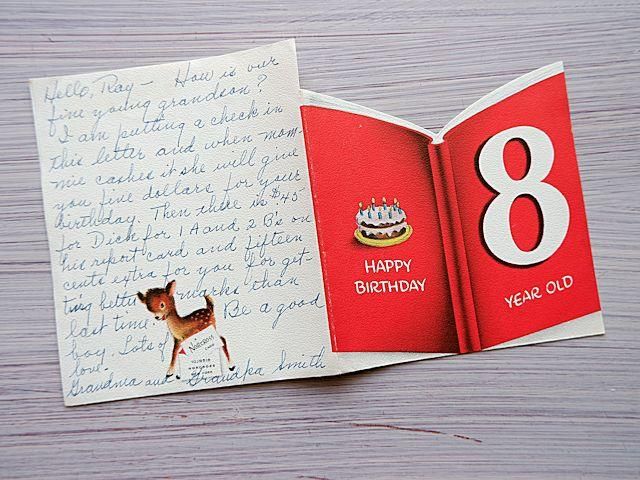 Hello, Ray — How is our
fine young grandson?
I am putting a check in
this letter and when mom-
mie cashes it she will give
you five dollars for your
birthday. Then there is $.45
for Dick for 1 A and 2 B's on
his report card and fifteen
cents extra for you for get-
ting better marks than
last time. Be a good
boy. Lots of
love.
Grandma and Grandpa Smith
Norcross
HAPPY
BIRTHDAY
8
YEAR OLD